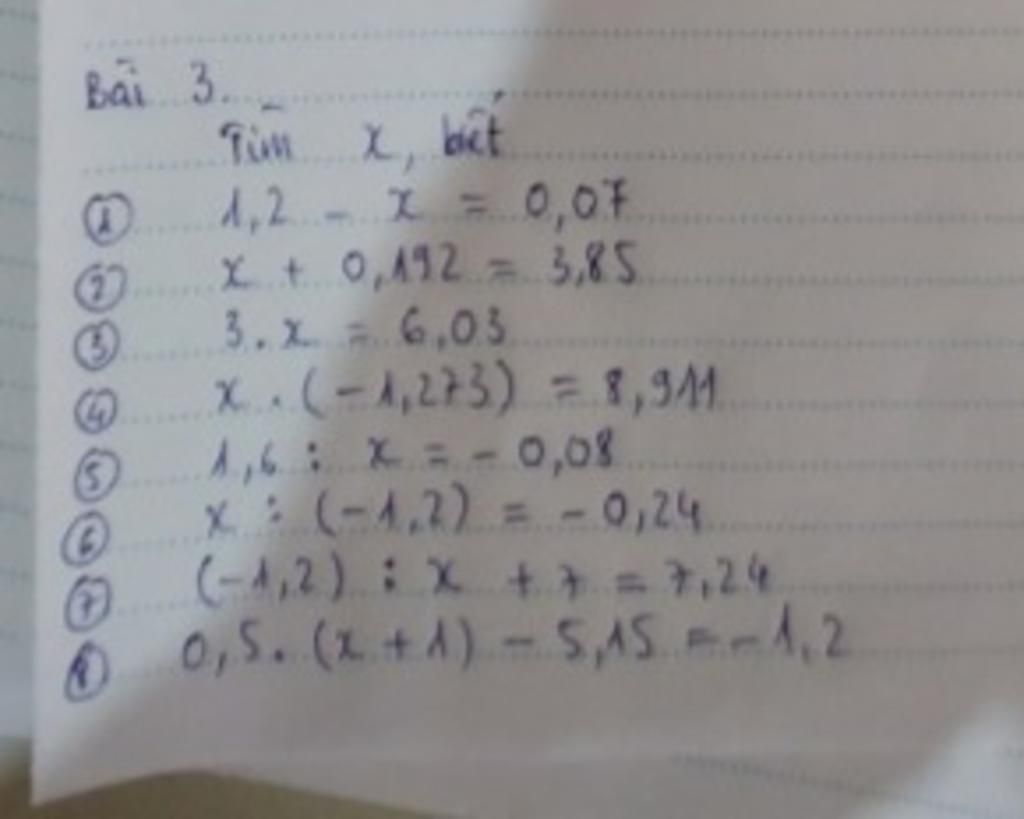 Bài 3.
Tìm x, biết
① 1,2 - x = 0,07
② x + 0,192 = 3,85
③ 3.x = 6,03
④ x . (-1,273) = 8,911
⑤ 1,6 : x = - 0,08
⑥ x : (-1,2) = - 0,24
⑦ (-1,2) : x + 7 = 7,24
⑧ 0,5. (x + 1) - 5,15 = - 1,2